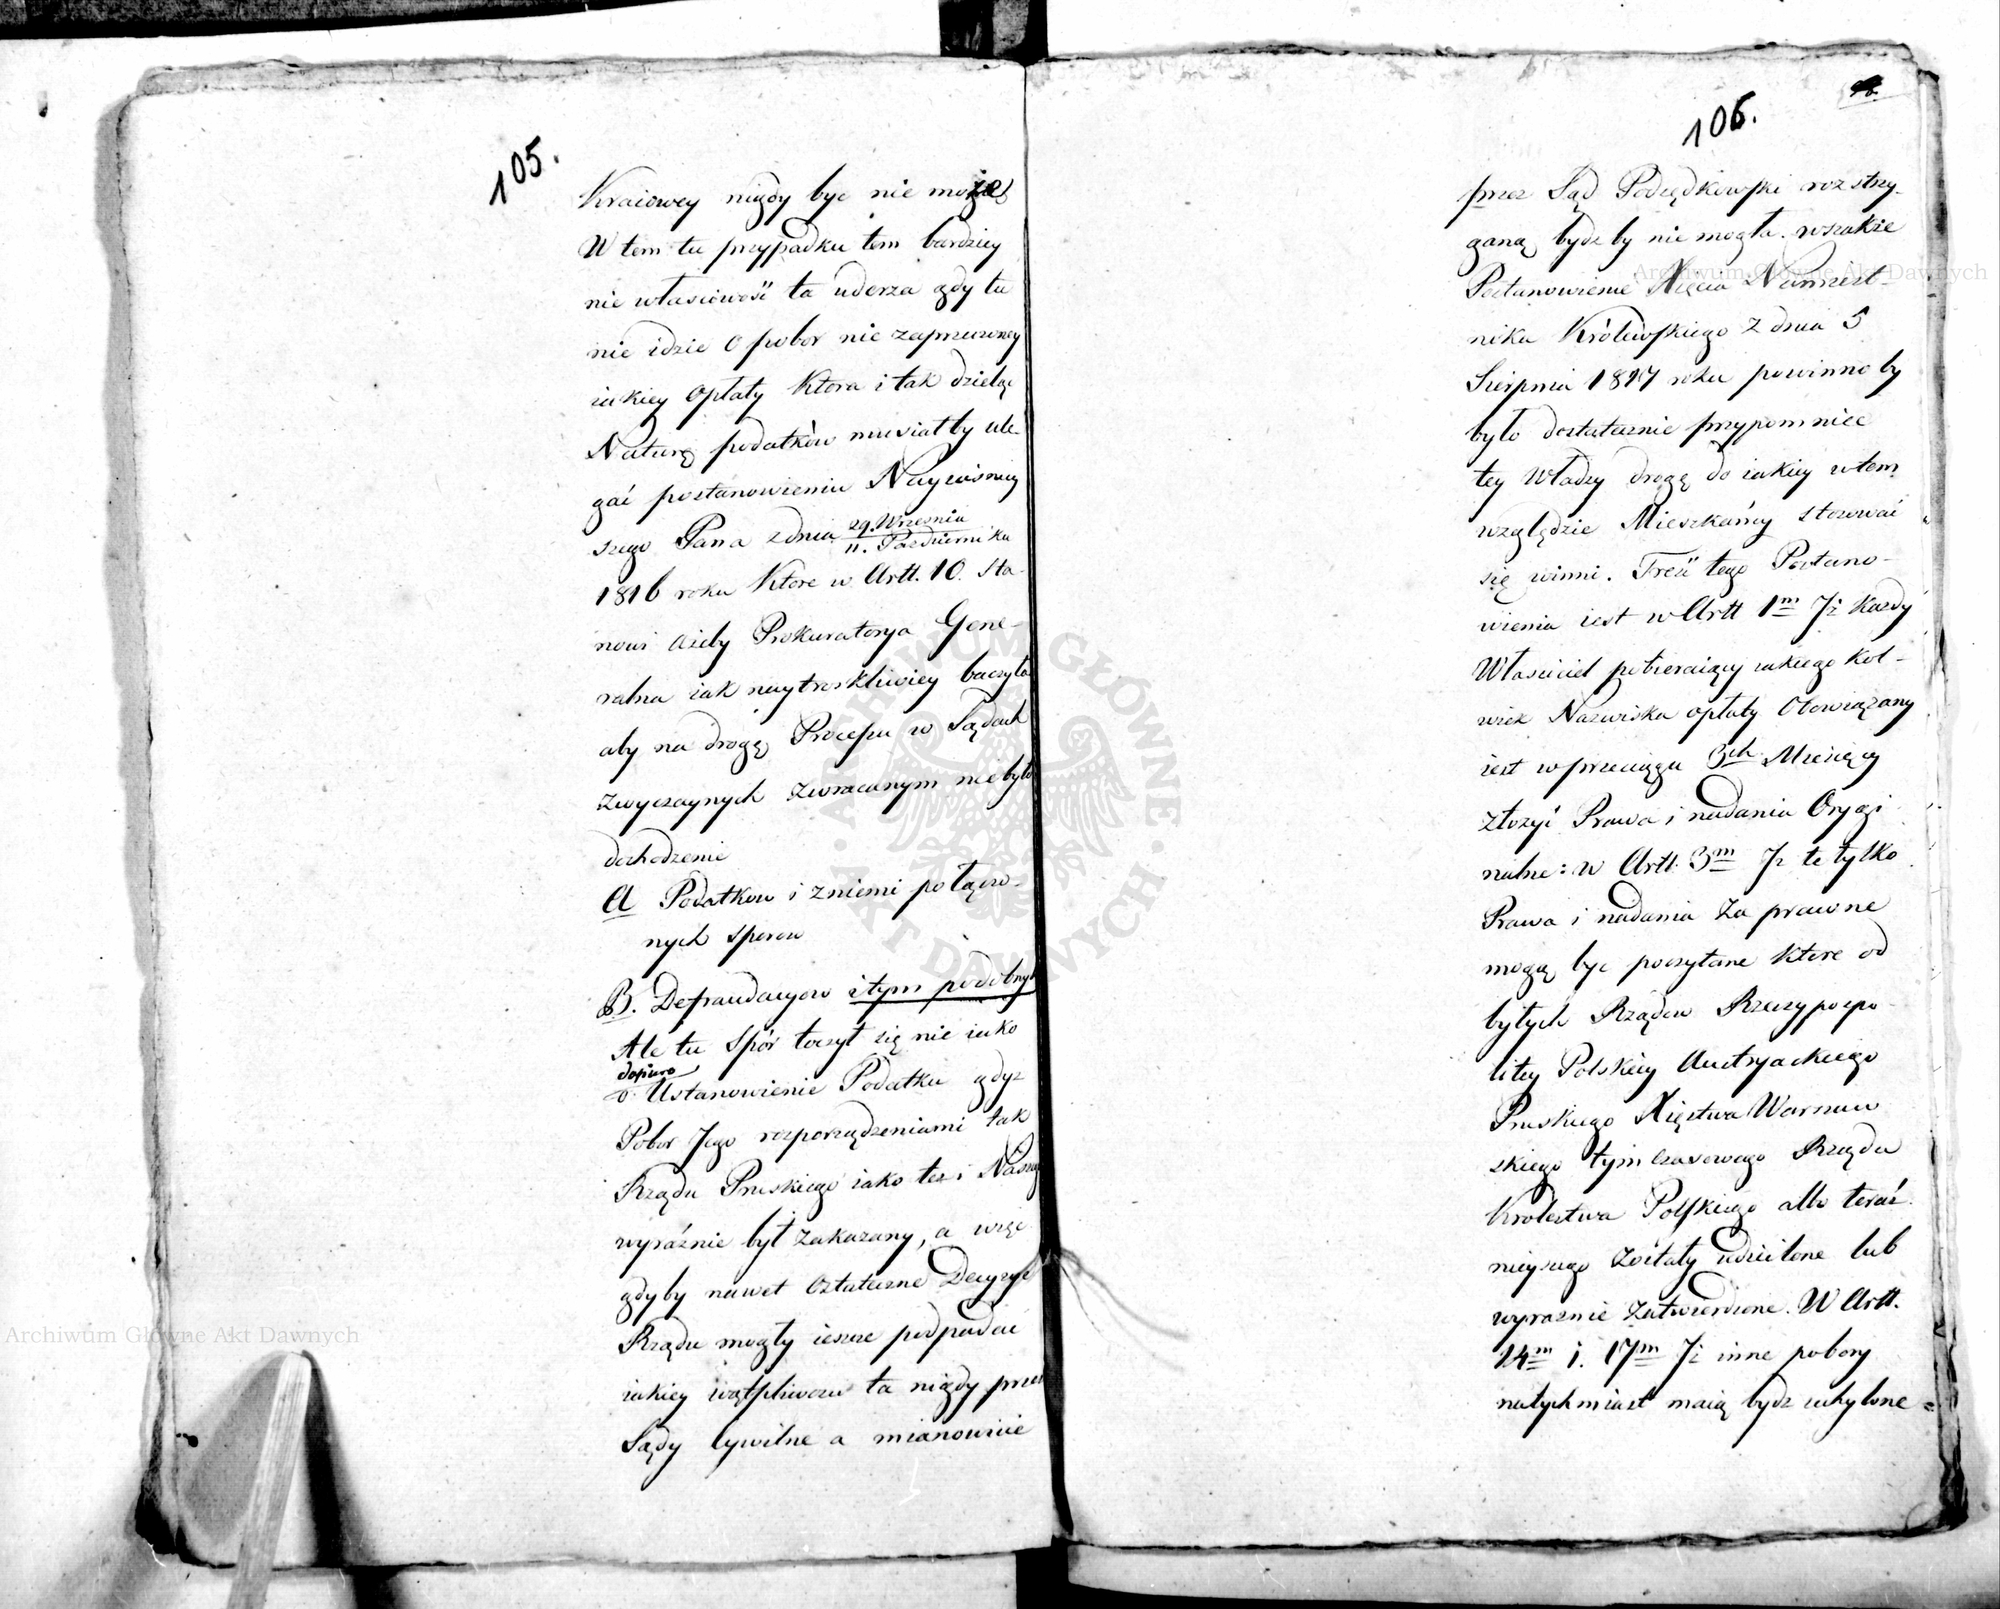 105.
Kraiowey nigdy byc nie może
W tem tu przypadku tem bardziey
nie własciwość ta uderza gdy tu
nie idzie o pobor nie zaprzeczoney
iakiey opłaty która i tak dzieląc
Naturę podatków musiałby ule-
gać postanowieniu Nayiaśniey
szego Pana z dnia 29. Wrzesnia
11. Pazdziernika
1816 roku które w Artt. 10. sta-
nowi ażeby Prokuratorya Gene-
ralna iak naytroskliwiey baczyła
aby na drogę Processu w Sądach
zwyczaynych zwracanym nie było
dochodzenie
A Podatkow i z niemi połączo-
nych sporow
B. Defraudacyow i tym podobnych
Ale tu Spór toczył się nie iako
dopiero
o Ustanowienie Podatku gdyz
Pobor Jego rozporządzeniami tak
Rządu Pruskiego iako tez i Naszego
wyraźnie był zakazany, a więc
gdyby nawet ostateczne Decyzye
Rządu mogły ieszcze podpadac
iakiey wątpliwosci ta nigdy przez
Sądy cywilne a mianowicie
106.
przez Sąd Podsędkowski rozstrzy-
ganą bydz by nie mogła. wszakże
Postanowienie Xięcia Namiest-
nika Królewskiego z dnia 5
Sierpnia 1817 roku powinno by
było dostatecznie przypomniec
tey Władzy drogę do iakiey w tem
względzie Mieszkańcy stosować
się winni. Treść tego Postano-
wienia iest w Artt 1m Jż kazdy
Własciciel pobieraiący iakiego kol-
wiek Nazwiska opłaty Obowiązany
iest w przeciągu 3ch Miesięcy
złożyć Prawa i nadania Orygi
nalne: w Artt. 3m Jż te tylko
Prawa i nadania za prawne
mogą byc poczytane które od
byłych Rządów Rzeczypospo-
litey Polskiey Austryackiego
Pruskiego Xięstwa Warszaw
skiego tymczasowego Rządu
Królestwa Polskiego albo teraź
nieyszego zostały udzielone lub
wyraznie zatwierdzone. W Artt.
14m i. 17m Jż inne pobory
natychmiast maią bydz uchylone =
Archiwum Główne Akt Dawnych
Archiwum Główne Akt Dawnych
ARCHIWUM GŁÓWNE · AKT DAWNYCH ·